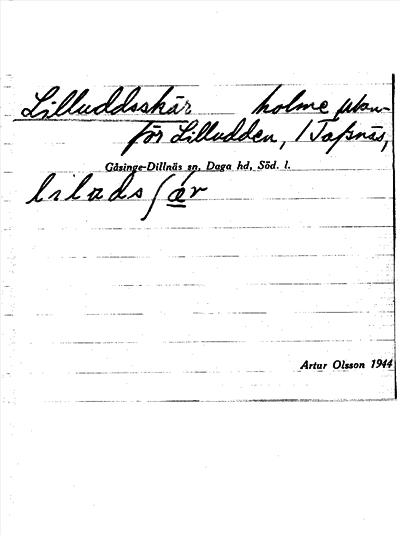 Lilluddsskär holme utan-
för Lilludden, 1 Taxnäs,
Gåsinge-Dillnäs sn, Daga hd, Söd. l.
Artur Olsson 1944